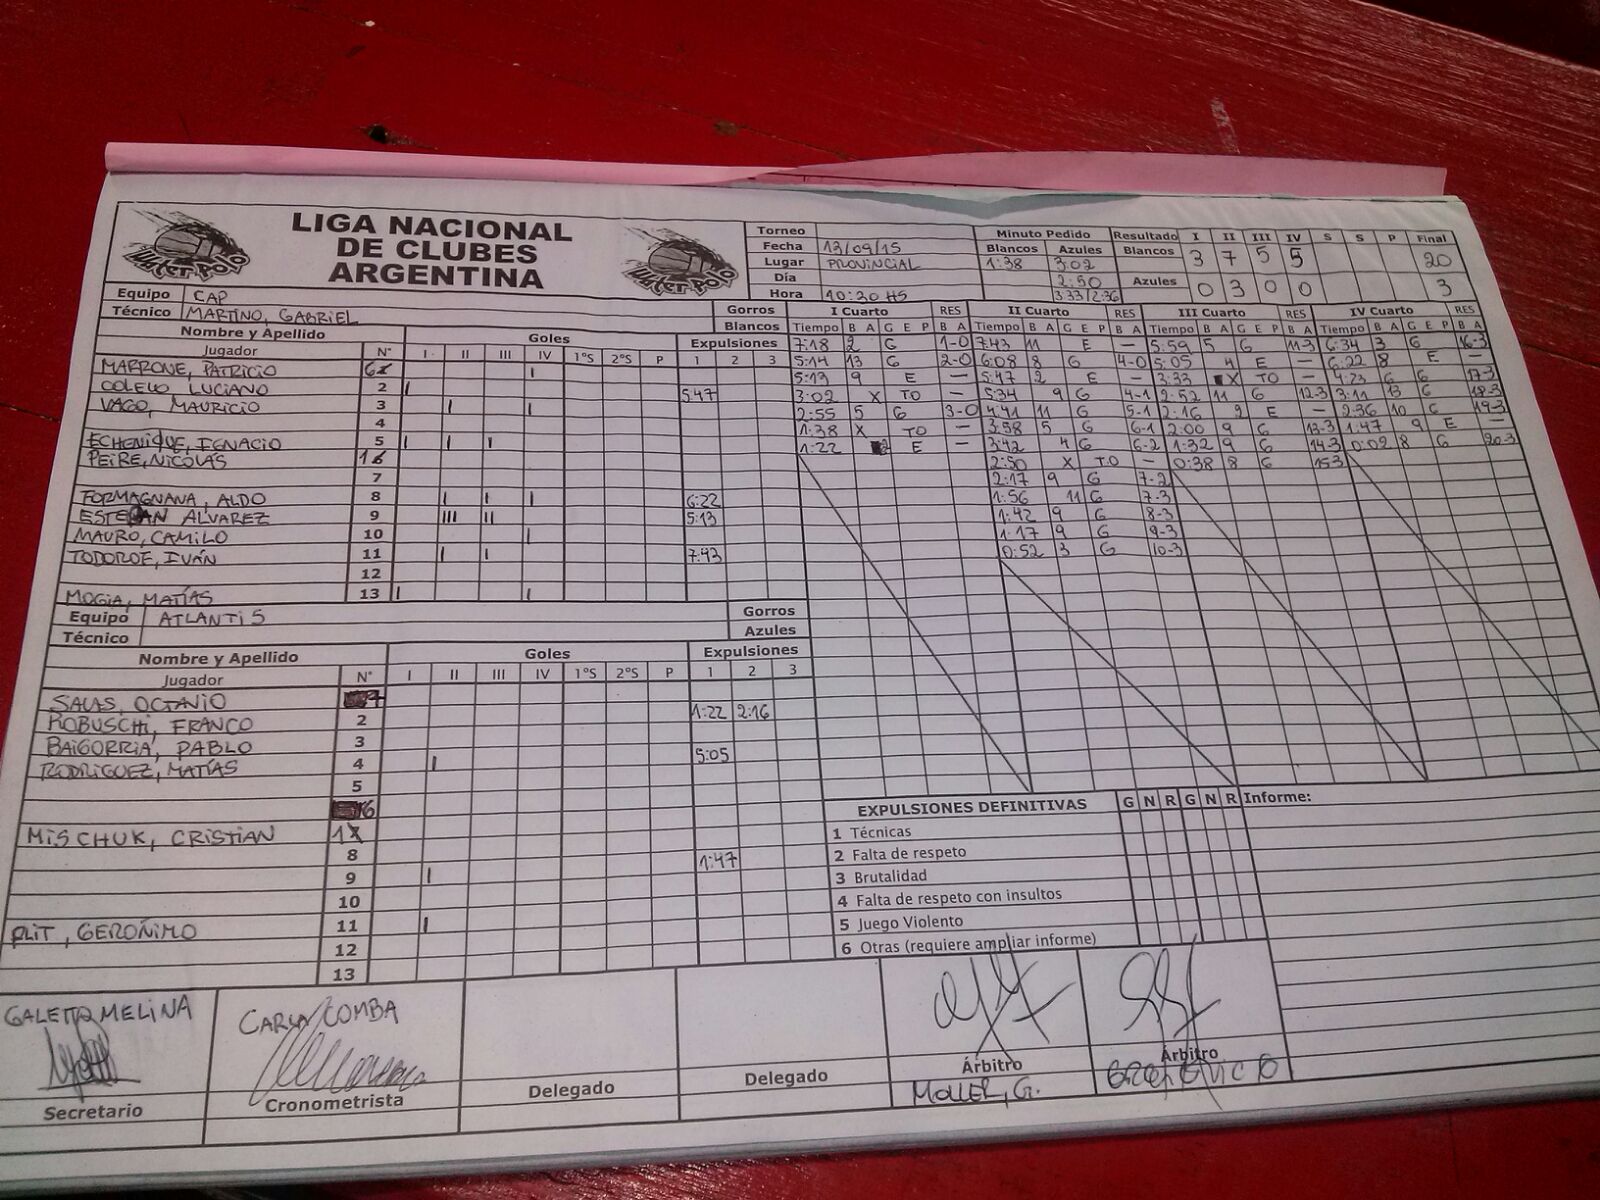 LIGA NACIONAL
DE CLUBES
ARGENTINA
Water Polo
Water Polo
Torneo
Fecha 13/09/15
Lugar PROVINCIAL
Día
Hora 10:30 HS
Minuto Pedido
Blancos Azules
1:38 3:02
2:50
3:33/2:36
Resultado I II III IV S S P Final
Blancos 3 7 5 5 20
Azules 0 3 0 0 3
Equipo CAP
Técnico MARTINO, GABRIEL
Gorros
Blancos
Nombre y Apellido Goles Expulsiones
Jugador N° I II III IV 1°S 2°S P 1 2 3
MARRONE, PATRICIO 6 I
COLELO LUCIANO 2 I 5:47
VAGO, MAURICIO 3 I I
4
ECHENIQUE, IGNACIO 5 I I I
PEIRE, NICOLAS 1
7
FORMAGNANA, ALDO 8 I I I 6:22
ESTEBAN ALVAREZ 9 III II 5:13
MAURO, CAMILO 10 I
TODOROE, IVÁN 11 II I 7:43
12
MOGIA, MATÍAS 13 I I
I Cuarto RES
Tiempo B A G E P B A
7:18 2 G 1-0
5:14 13 G 2-0
5:13 9 E —
3:02 X TO —
2:55 5 G 3-0
1:38 X TO —
1:22 2 E —
II Cuarto RES
Tiempo B A G E P B A
7:43 11 E —
6:08 8 G 4-0
5:47 2 E —
5:34 9 G 4-1
4:41 11 G 5-1
3:58 5 G 6-1
3:42 4 G 6-2
2:50 X T.O —
2:17 9 G 7-2
1:56 11 G 7-3
1:42 9 G 8-3
1:17 9 G 9-3
0:52 3 G 10-3
III Cuarto RES
Tiempo B A G E P B A
5:59 5 G 11-3
5:05 4 E —
3:33 X TO —
2:52 11 G 12-3
2:16 2 E —
2:00 9 G 13-3
1:32 9 G 14-3
0:38 8 G 15-3
IV Cuarto RES
Tiempo B A G E P B A
6:34 3 G 16-3
6:22 8 E —
4:23 6 G 17-3
3:11 13 G 18-3
2:36 10 G 19-3
1:47 9 E —
0:02 8 G 20-3
Equipo ATLANTIS
Técnico
Gorros
Azules
Nombre y Apellido Goles Expulsiones
Jugador N° I II III IV 1°S 2°S P 1 2 3
SALAS, OCTAVIO 7
ROBUSCHI, FRANCO 2 1:22 2:16
BAIGORRIA, PABLO 3
RODRIGUEZ, MATÍAS 4 I 5:05
5
6
MISCHUK, CRISTIAN 1
8
9 I 1:47
10
PLIT, GERÓNIMO 11 I
12
13
EXPULSIONES DEFINITIVAS G N R G N R
1 Técnicas
2 Falta de respeto
3 Brutalidad
4 Falta de respeto con insultos
5 Juego Violento
6 Otras (requiere ampliar informe)
Informe:
GALETTO MELINA
Secretario
CARLA COMBA
Cronometrista
Delegado
Delegado
Árbitro
MOLLER, G.
Árbitro